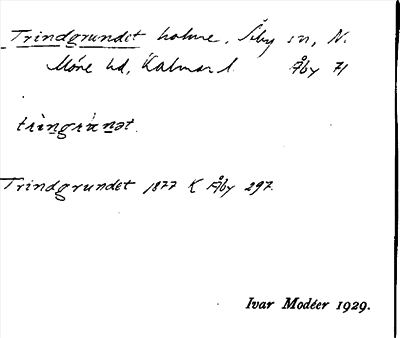 Trindgrundet holme, Åby sn, N.
Möre hd, Kalmar l. Åby 71
trìngránət.
Trindgrundet 1877 K Åby 297.
Ivar Modéer 1929.